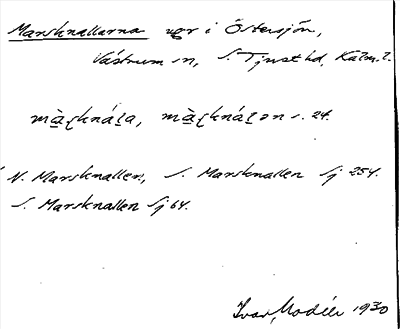 Marsknallarna ugr i Östersjön,
Västrum sn, S. Tjust hd, Kalm. l.
mà̱ʂknáḻa, mà̱ʂknáḻən s. 24.
N. Marsknallen, S. Marsknallen Sj 254.
S. Marsknallen Sj 64.
Ivar Modéer 1930